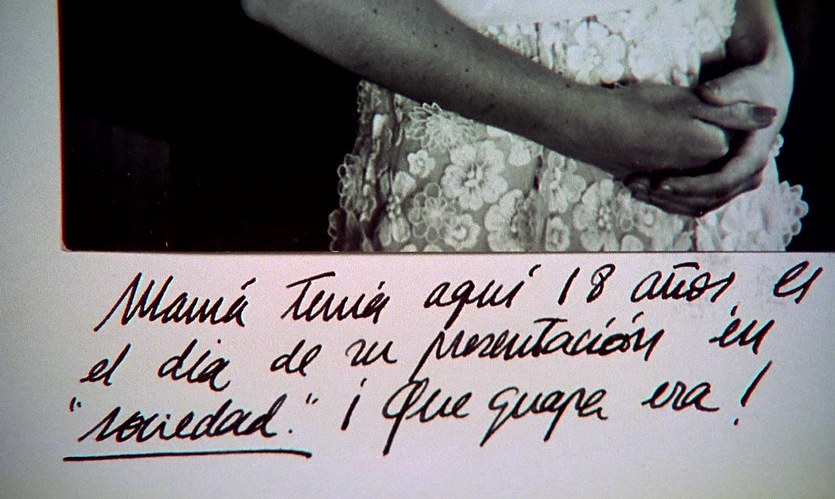 Mamá tenía aquí 18 años, es
el dia de su presentación en
"sociedad." ¡Que guapa era!